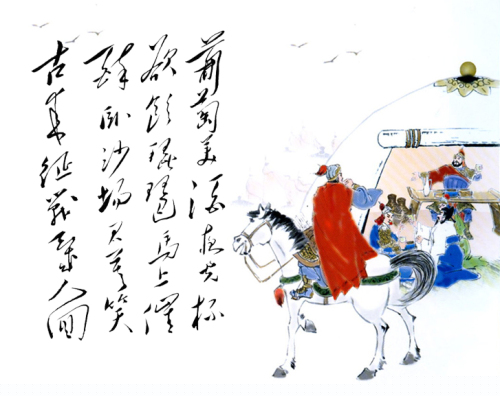 葡萄美酒夜光杯
欲飲琵琶馬上催
醉卧沙場君莫笑
古来征戰幾人回